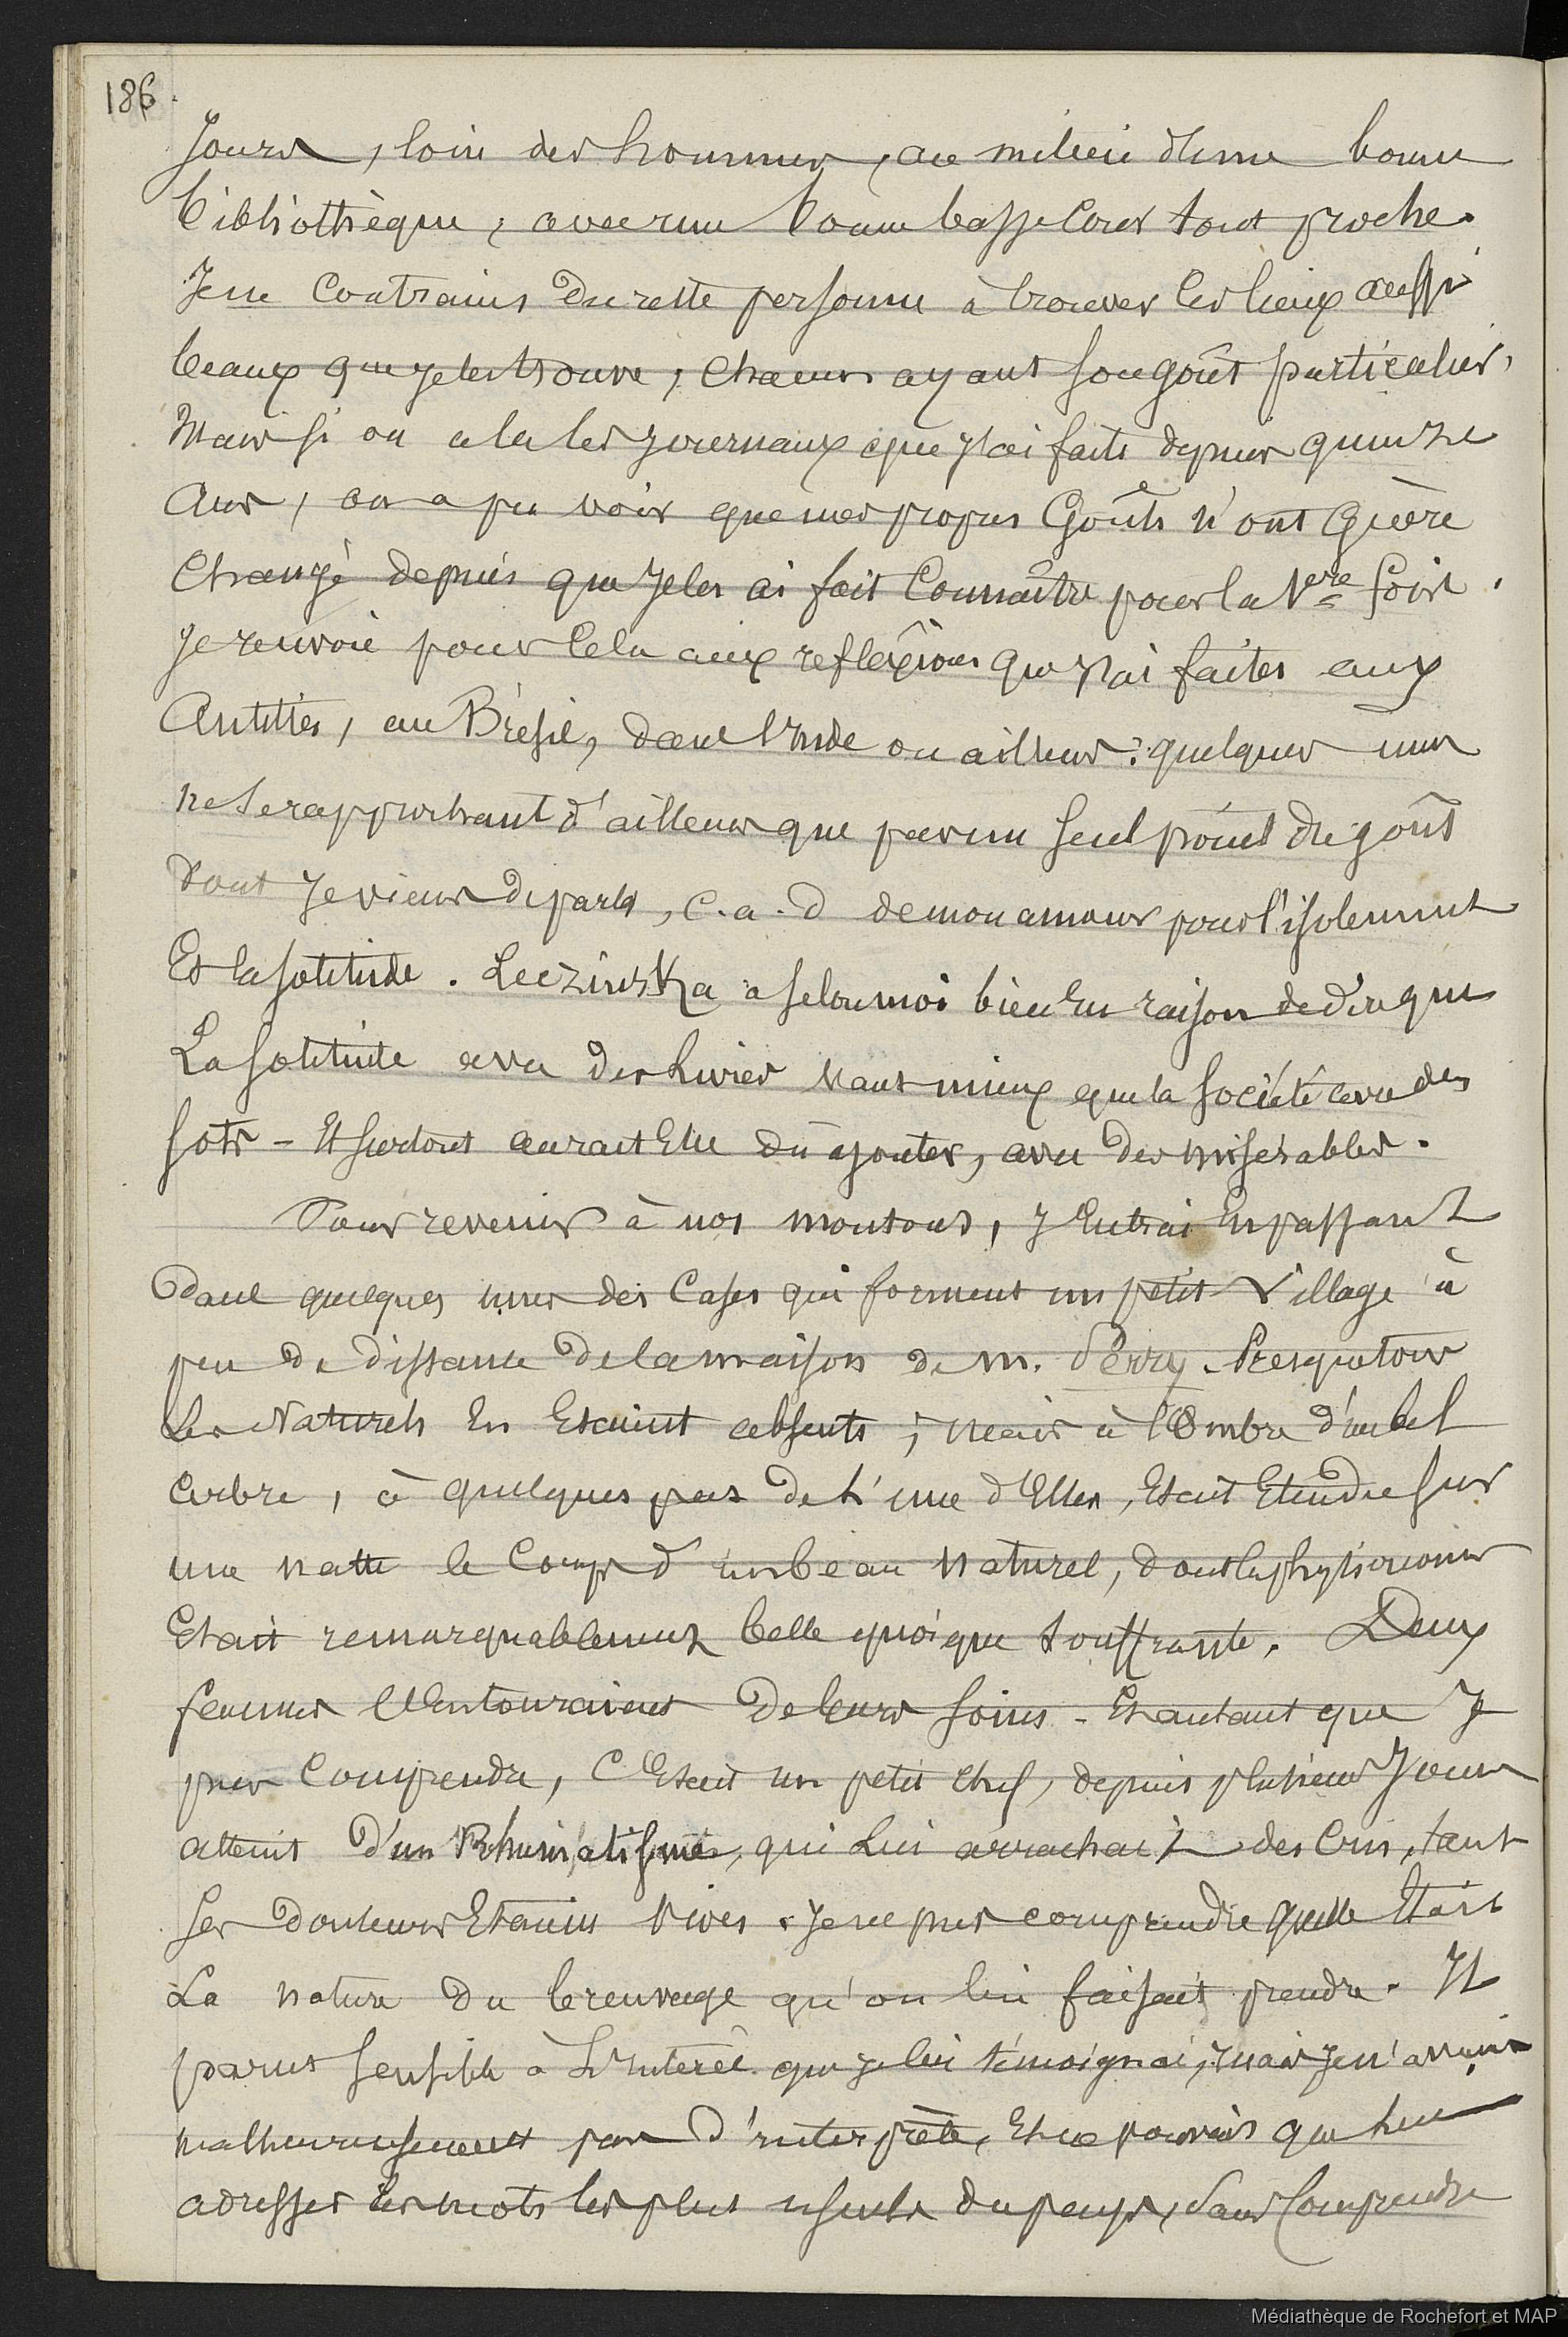 186.
Jours, loin des hommes, au milieu d'une bonne
bibliothèque, avec une bonne basse Cour tout proche.
Je ne Contrains du reste personne à trouver les lieux aussi
beaux que je les trouve, Chacun ayant son goût particulier,
Mais si on a lu les journaux que j'ai faits depuis quinze
Ans, on a pu voir que mes propres Goûts n'ont guère
Changé depuis que je les ai fait Connaître pour la 1ère fois.
Je renvoie pour Cela aux reflexions que j'ai faites aux
Antilles, au Brésil, dans l'Inde ou ailleurs: quelques unes
ne se rapportant d'ailleurs que par un seul point du goût
dont Je viens de parler, C.a.d de mon amour pour l'isolement
Et la solitude. Leczinska a selon moi bien Eu raison de dire que
La solitude avec des Livres vaut mieux que la société avec des
sots - Et surtout aurait Elle dû ajouter, avec des misérables.
Pour revenir à nos moutons, J'Entrai En passant
Dans quelques unes des Cases qui forment un petit Village à
peu de distance de la maison de M. Perry. Presque tous
Les Naturels En Etaient absents; mais à l'Ombre d'un bel
arbre, à quelques pas de L'une d'Elles, Etait Etendu sur
une natte le Corps d'un beau Naturel, dont la physionomie
Etait remarquablement belle quoique souffrante. Deux
femmes l'Entouraient De leurs soins - Et autant que Je
pus Comprendre, C'Etait un petit Chef, depuis plusieurs Jours
atteint D'un Rhumatisme, qui Lui arrachait des Cris, tant
Ses douleurs Etaient Vives. Je ne pus comprendre quelle Etait
La nature du breuvage qu'on lui faisait prendre. Il
parut sensible à L'Interêt que je lui témoignai, mais Je n'avais
malheureusement pas D'interprète, Et ne pouvais que lui
adresser les mots les plus usuels du pays, sans Comprendre
Médiathèque de Rochefort et MAP